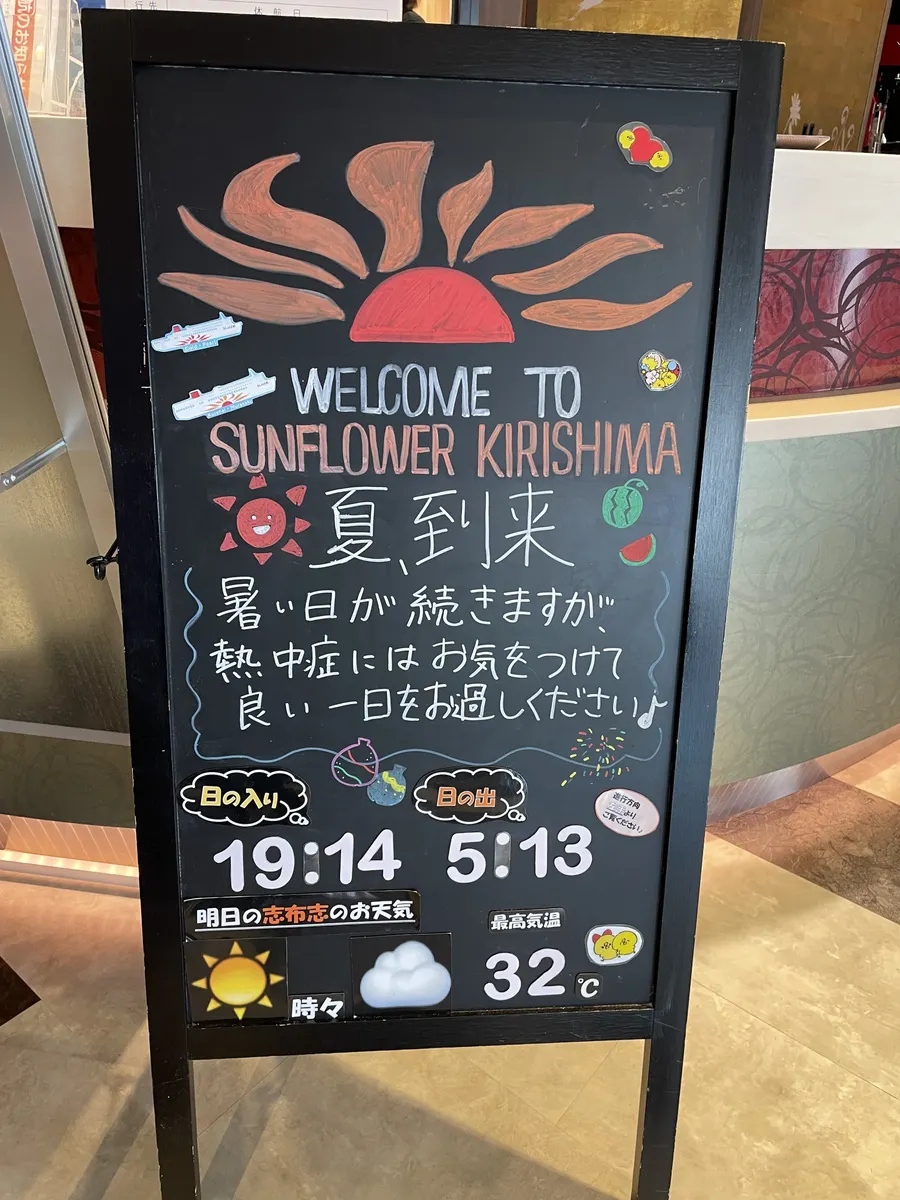 行先
休航日
WELCOME TO
SUNFLOWER KIRISHIMA
夏、到来
暑い日が続きますが、
熱中症にはお気をつけて
良い一日をお過しください♪
日の入り
日の出
進行方向
より
ご覧ください
19:14
5:13
明日の志布志のお天気
最高気温
時々
32℃